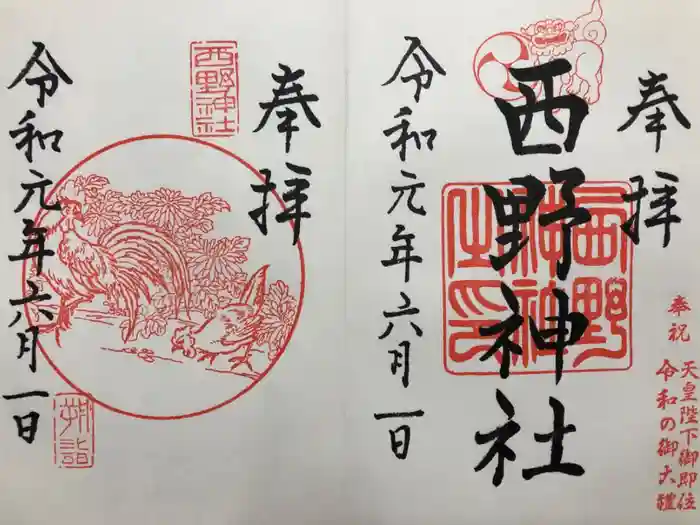 奉拝
奉祝 天皇陛下御即位
令和の御大礼
西野神社
西野神社之印
令和元年六月一日
奉拝
西野神社
令和元年六月一日
朔詣